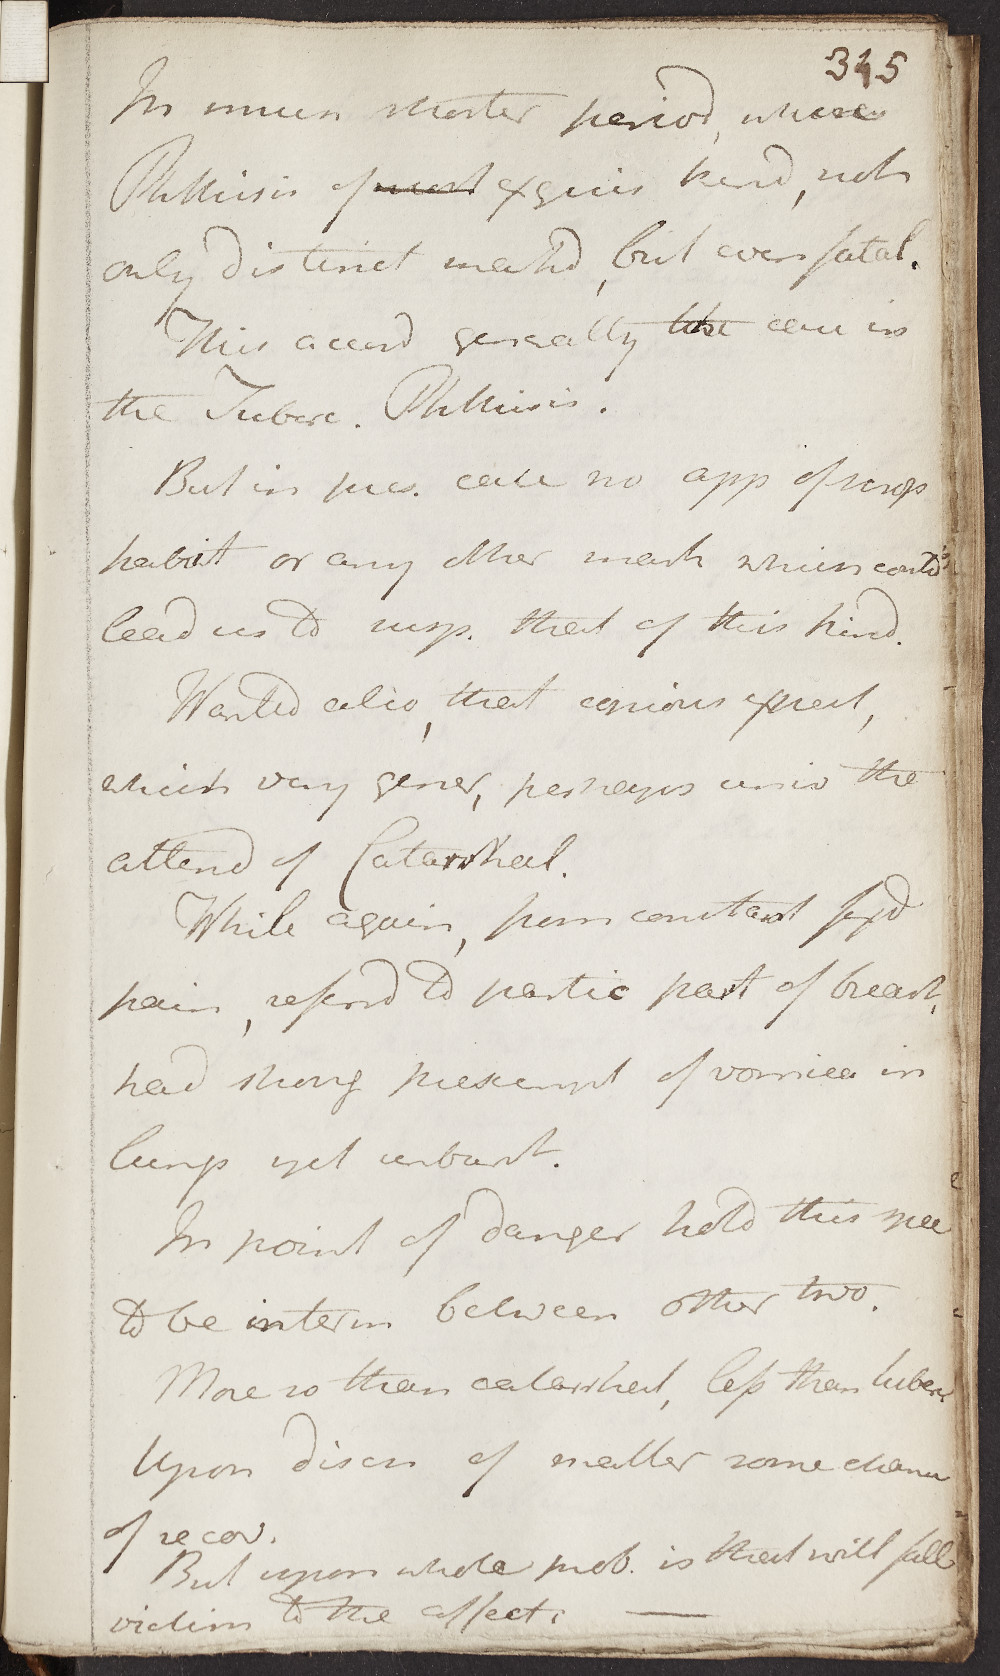 345
In much shorter period, where
Phthisis of most exquis kind, not
only distinct mark'd, but even fatal.
This accord generally the case in
the Tuberc. Phthisis.
But in pres. case no app of scrop
habit or any other mark which could
lead us to susp. that of this kind.
Wanted also, that copious expect,
which very gener, perhaps univ the
attend of Catarrhal.
While again, from constant fix'd
pain, referrd to partic part of breast,
had strong presumpt of vomica in
lungs yet unburst.
In point of danger hold this spec
to be interm between other two.
More so than catarrhal, less than tuberc
Upon disch of matter some chance
of recov.
But upon whole prob. is that will fall
victim to the affect. —